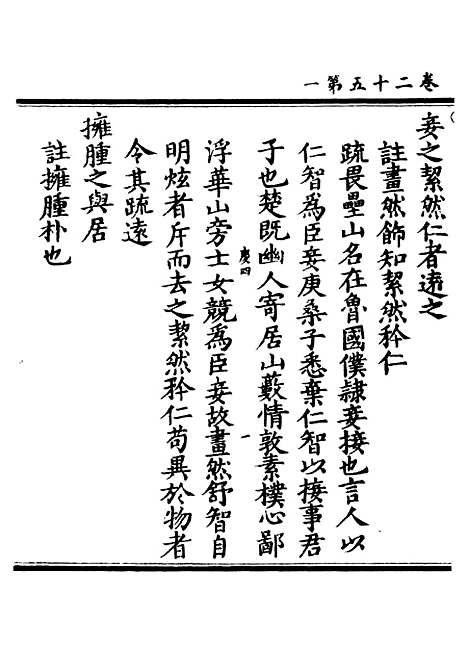 卷二十五第一
妾之絜然仁者遠之
註畫然飾知絜然矜仁
疏畏壘山名在魯國僕隸妾接也言人以
仁智為臣妾庚桑子悉棄仁智以接事君
子也楚既幽人寄居山藪情敦素樸心鄙
慶四
一
浮華山旁士女競為臣妾故畫然舒智自
明炫者斥而去之絜然矜仁苟異於物者
令其疏遠
擁腫之與居
註擁腫朴也